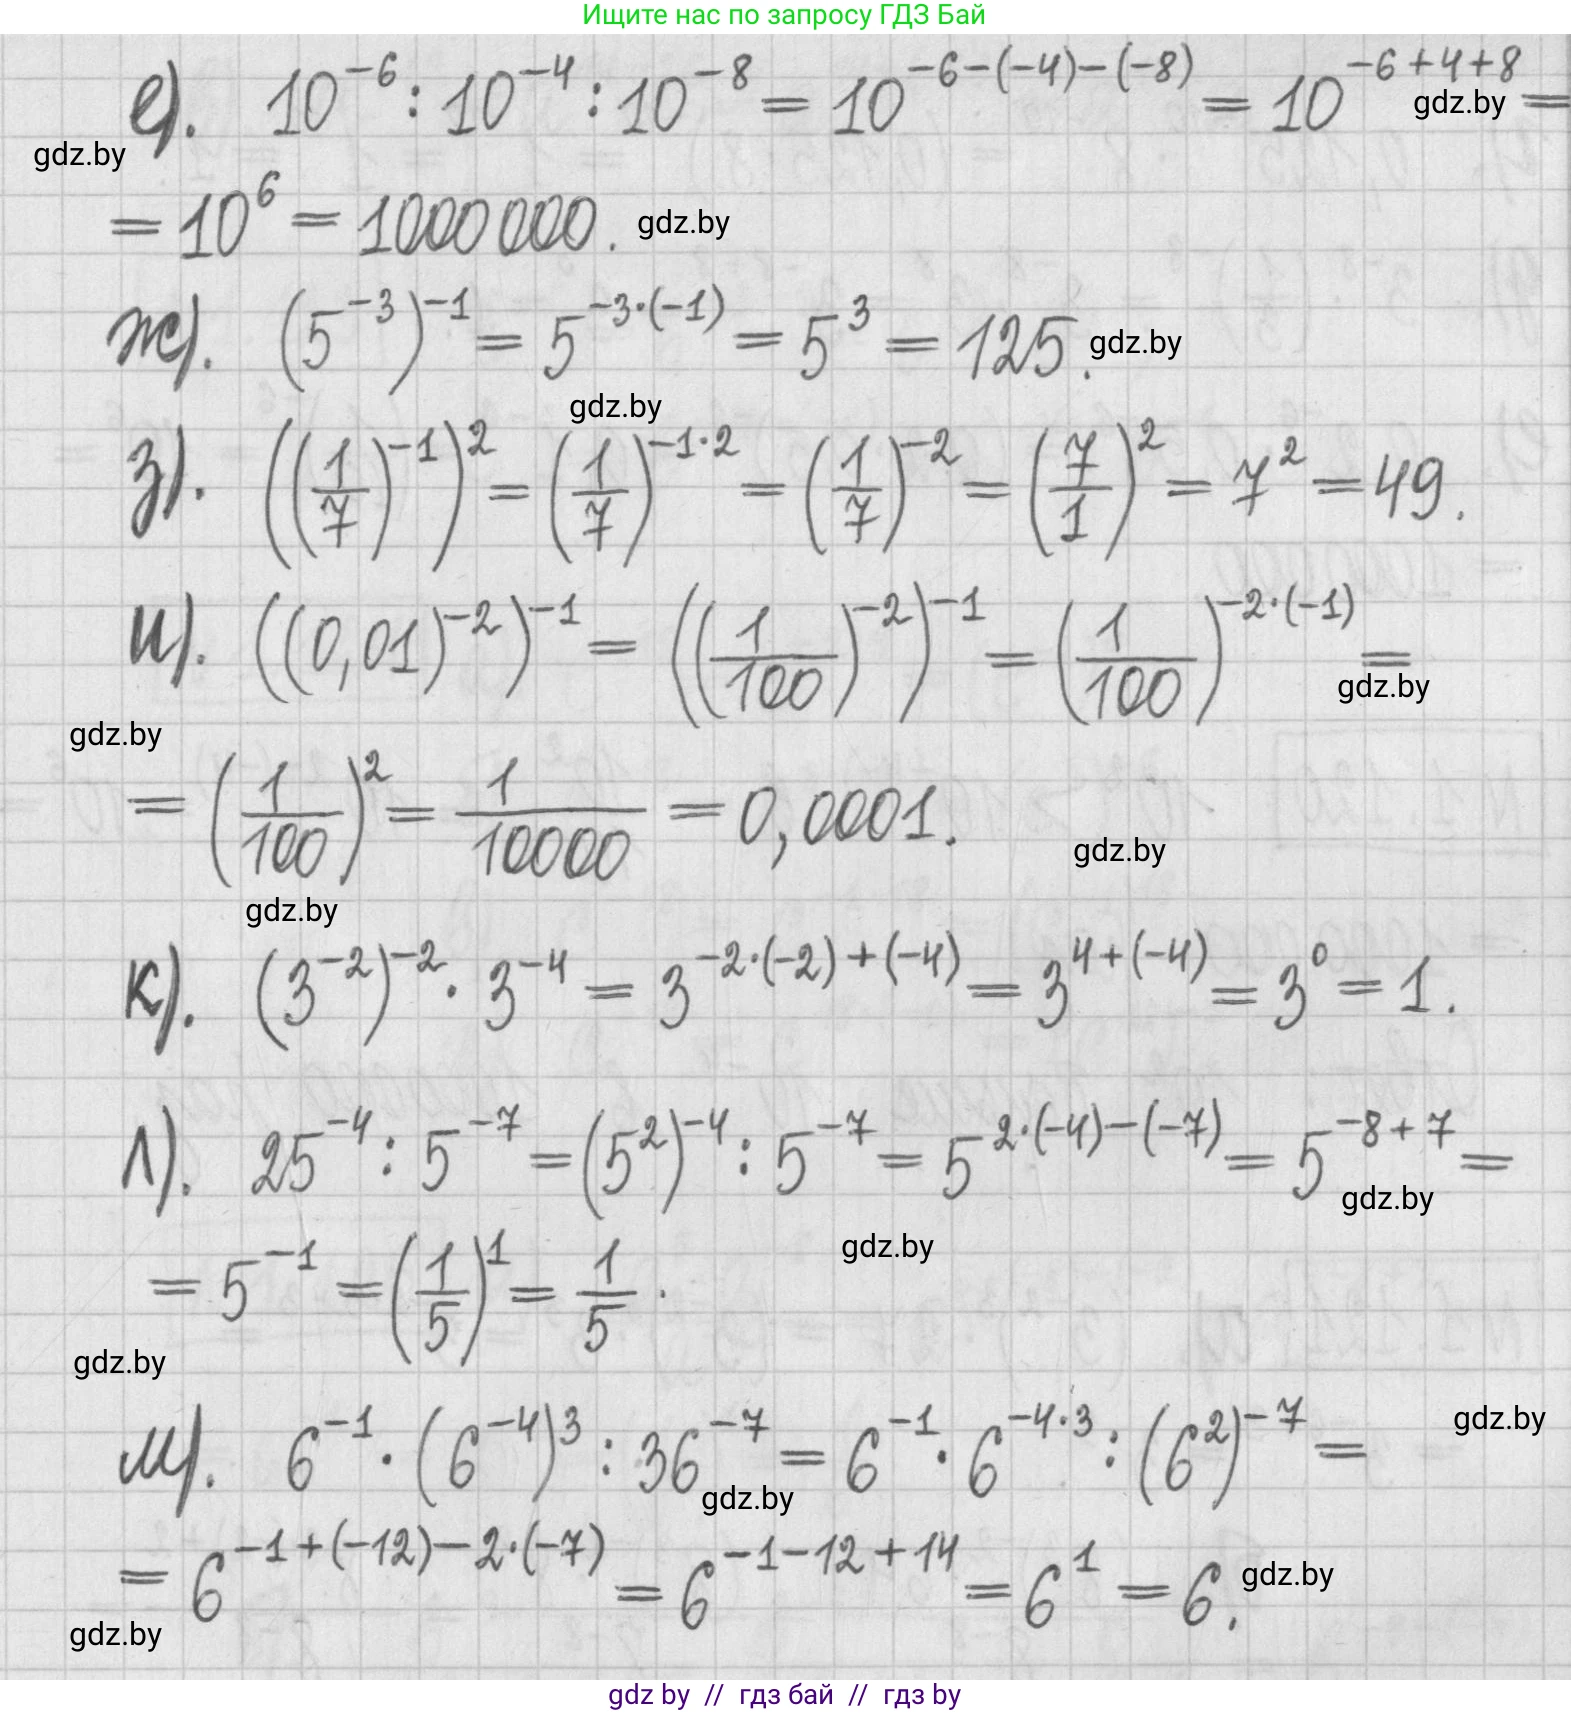 Ищите нас по запросу ГДЗ Бай
е). 10^{-6} : 10^{-4} : 10^{-8} = 10^{-6-(-4)-(-8)} = 10^{-6+4+8} =
gdz.by
gdz.by
= 10^6 = 1000 000. gdz.by
ж). (5^{-3})^{-1} = 5^{-3·(-1)} = 5^3 = 125. gdz.by
gdz.by
з). ((1/7)^{-1})^2 = (1/7)^{-1·2} = (1/7)^{-2} = (7/1)^2 = 7^2 = 49.
и). ((0,01)^{-2})^{-1} = ((1/100)^{-2})^{-1} = (1/100)^{-2·(-1)} =
gdz.by
gdz.by
= (1/100)^2 = 1/10000 = 0,0001.
gdz.by
gdz.by
к). (3^{-2})^{-2} · 3^{-4} = 3^{-2·(-2)+(-4)} = 3^{4+(-4)} = 3^0 = 1.
л). 25^{-4} : 5^{-7} = (5^2)^{-4} : 5^{-7} = 5^{2·(-4)-(-7)} = 5^{-8+7} =
gdz.by
gdz.by
= 5^{-1} = (1/5)^1 = 1/5.
gdz.by
gdz.by
м). 6^{-1} · (6^{-4})^3 : 36^{-7} = 6^{-1} · 6^{-4·3} : (6^2)^{-7} =
gdz.by
= 6^{-1+(-12)-2·(-7)} = 6^{-1-12+14} = 6^1 = 6. gdz.by
gdz.by
gdz by // гдз бай // гдз by